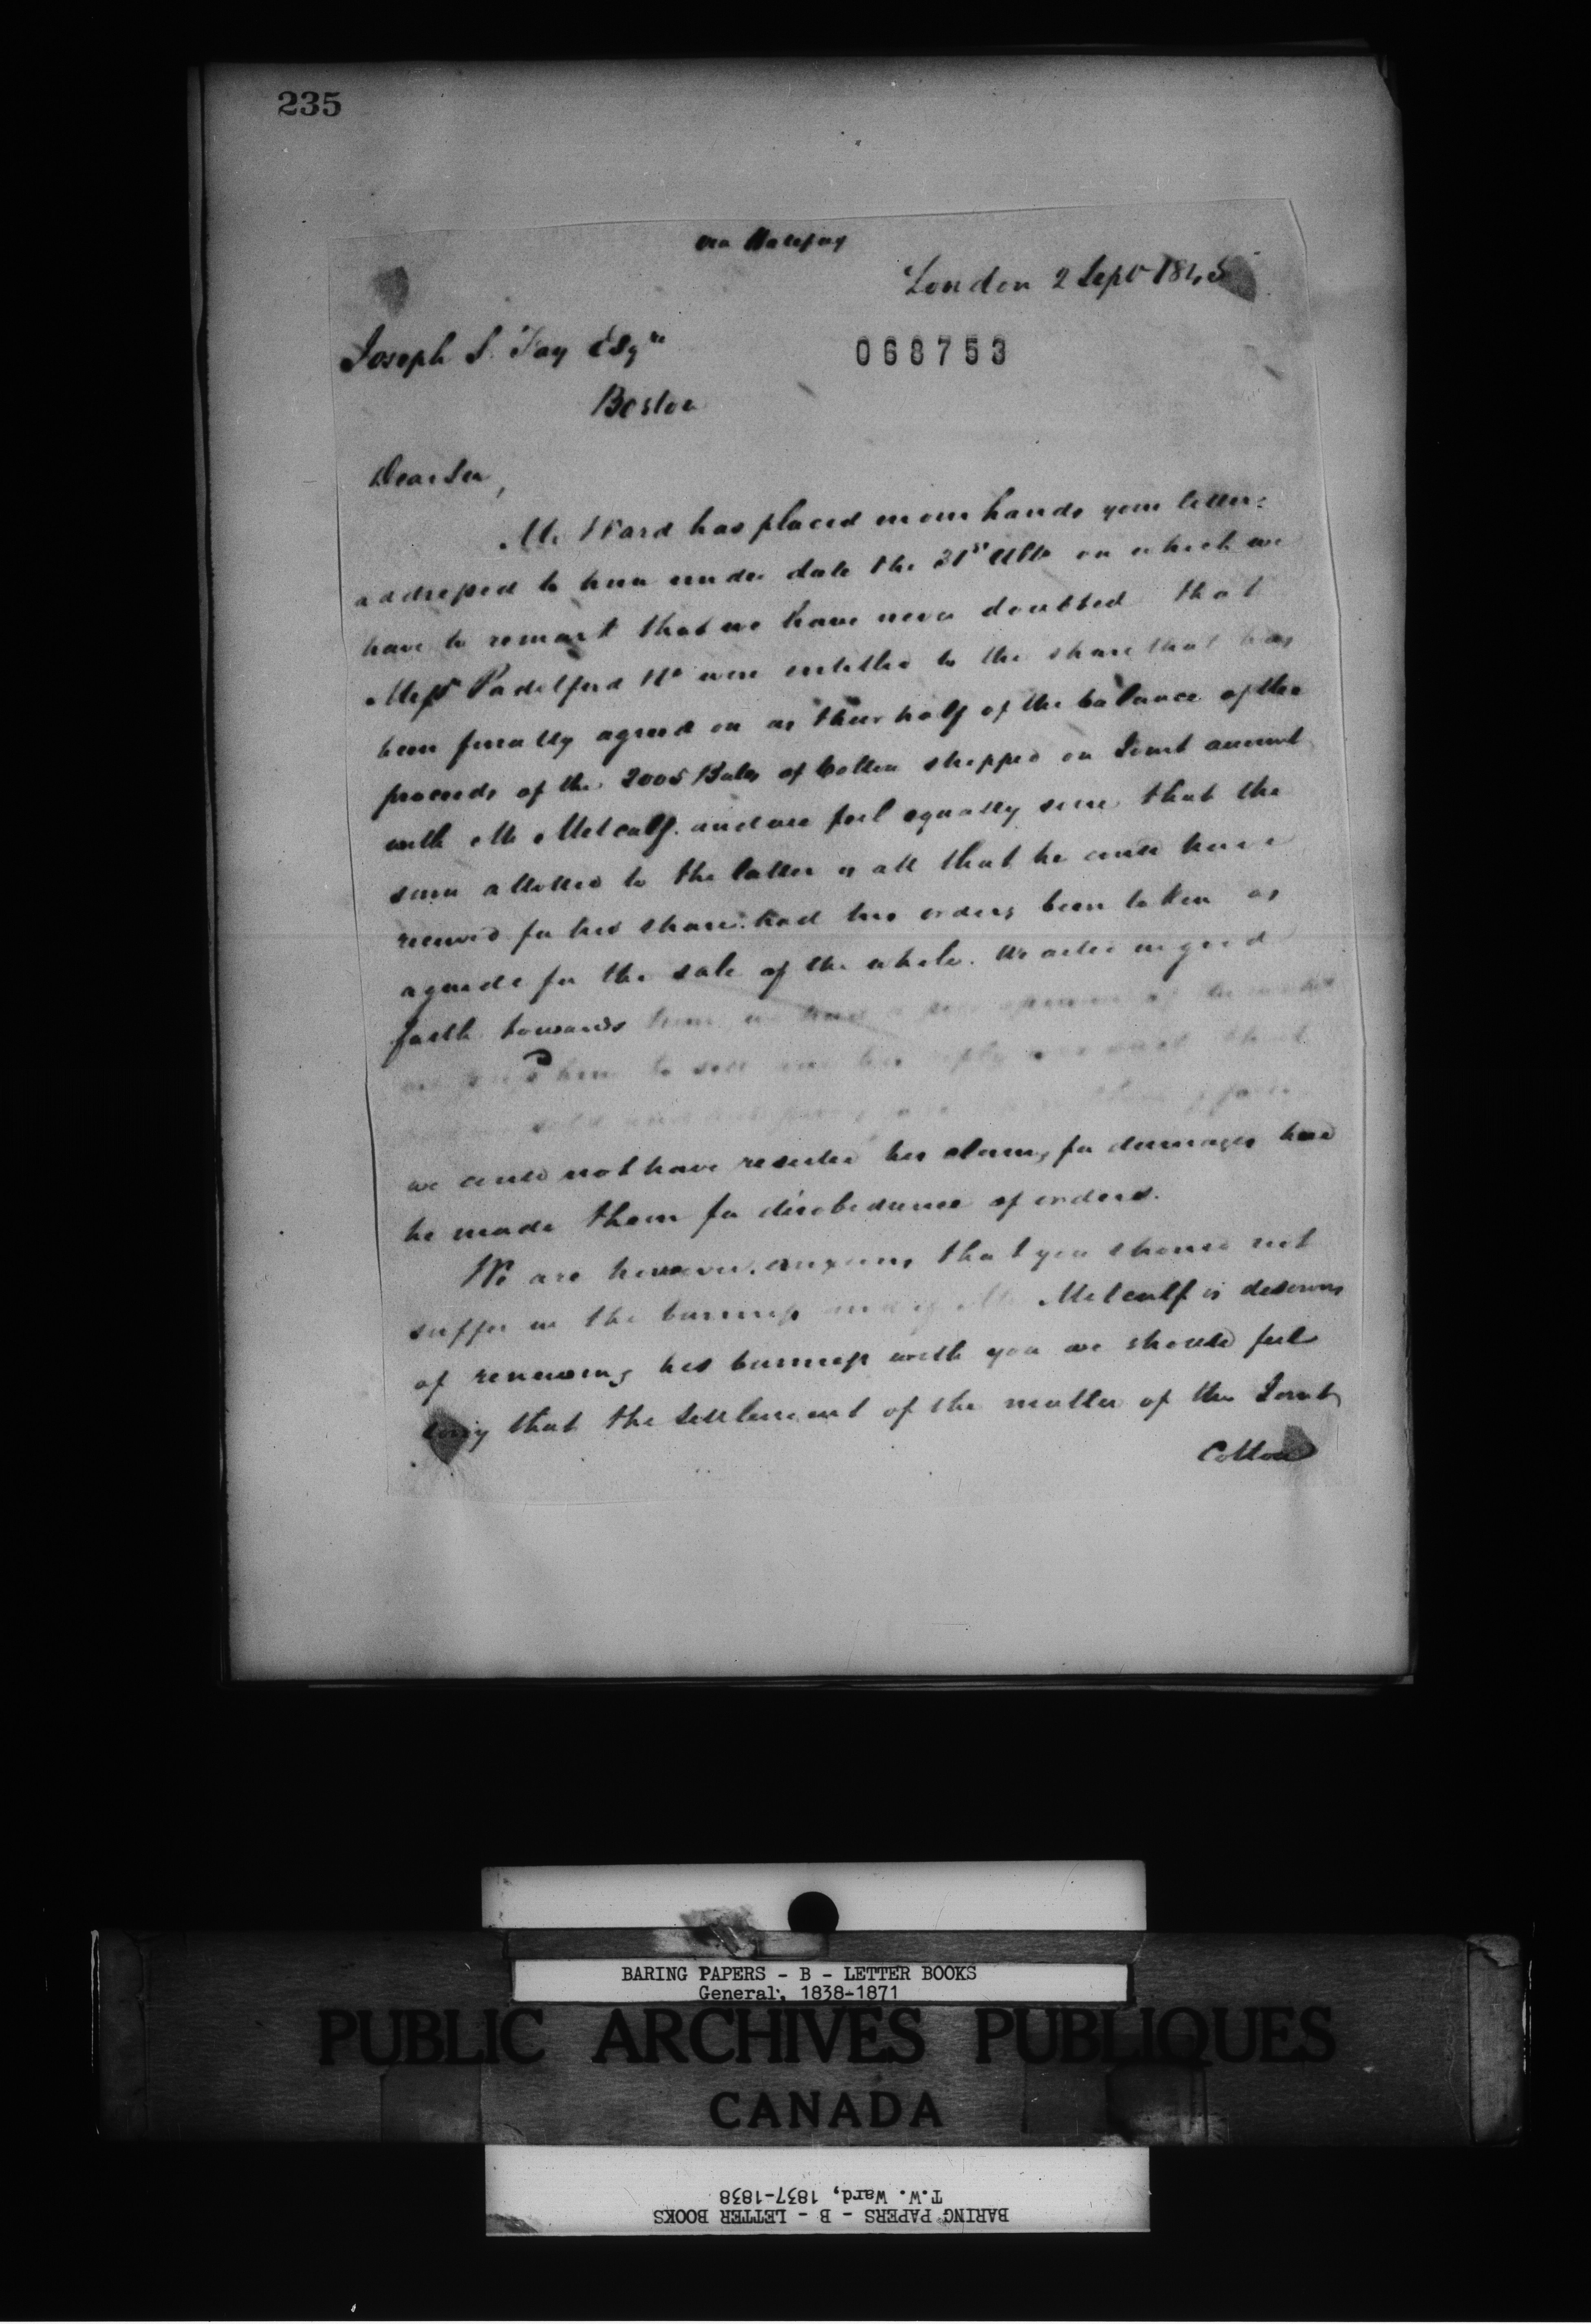 235
via Halifax
London 2 Sept 1845
Joseph S. Fay Esqre
068753
Boston
Dear Sir,
Mr Ward has placed in our hands your letter
addressed to him under date the 31st Ulto on which we
have to remark that we have never doubted that
Messrs Padelford & Co were entitled to the share that has
been finally agreed on as their half of the balance of the
proceeds of the 2005 Bales of Cotton shipped on Joint account
with Mr Metcalf. and we feel equally sure that the
sum allotted to the latter is all that he could have
received for his share had his orders been taken as
a guide for the sale of the whole. We acted in good
faith towards him we had a poor opinion of the market
him to sell and his reply was such that
sold and
we could not have resisted his claims for damages had
he made them for disobedience of orders.
We are however anxious that you should not
suffer in the business and if Mr Metcalf is desirous
of renewing his business with you we should feel
sorry that the settlement of the matter of the Joint
Cotton
BARING PAPERS - B - LETTER BOOKS
General, 1838-1871
PUBLIC ARCHIVES PUBLIQUES
CANADA
BARING PAPERS - B - LETTER BOOKS
T.W. Ward, 1837-1838